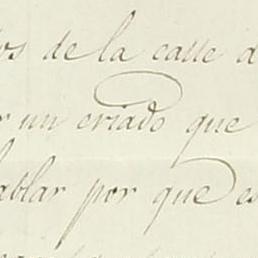 os de la calle a
r un criado que
ablar por que es